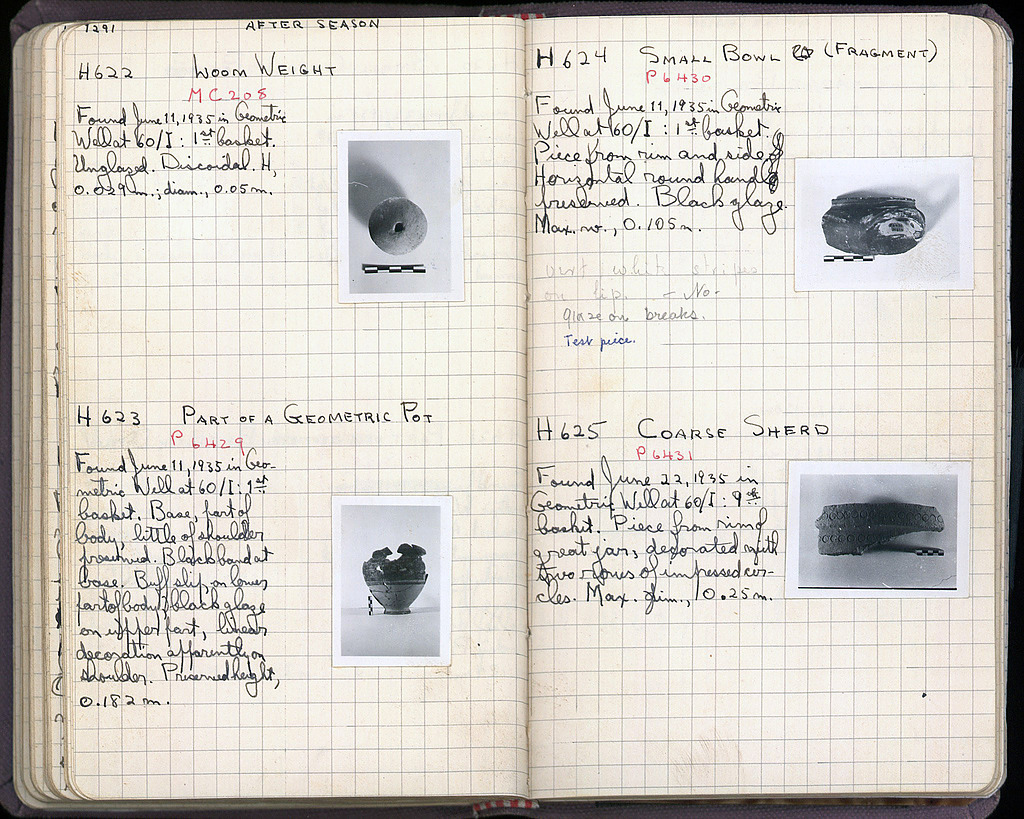 1291 AFTER SEASON
H 622 LOOM WEIGHT
MC 208
Found June 11, 1935 in Geometric
Well at 60/I : 1st basket.
Unglazed. Discoidal. H,
0.029 m.; diam., 0.05 m.
H 623 PART OF A GEOMETRIC POT
P 6429
Found June 11, 1935 in Geo-
metric Well at 60/I : 1st
basket. Base, part of
body, little of shoulder
preserved. Black band at
base. Buff slip on lower
part of body; black glaze
on upper part, linear
decoration apparently on
shoulder. Preserved height,
0.182 m.
H 624 SMALL BOWL (FRAGMENT)
P 6430
Found June 11, 1935 in Geometric
Well at 60/I : 1st basket.
Piece from rim and side
Horizontal round handle
preserved. Black glaze.
Max. w., 0.105 m.
vert white stripes
on lip. - No -
glaze on breaks.
Test piece.
H 625 COARSE SHERD
P 6431
Found June 22, 1935 in
Geometric Well at 60/I : 9th
basket. Piece from rim of
great jar, decorated with
two rows of impressed cir-
cles. Max. dim., 0.25 m.